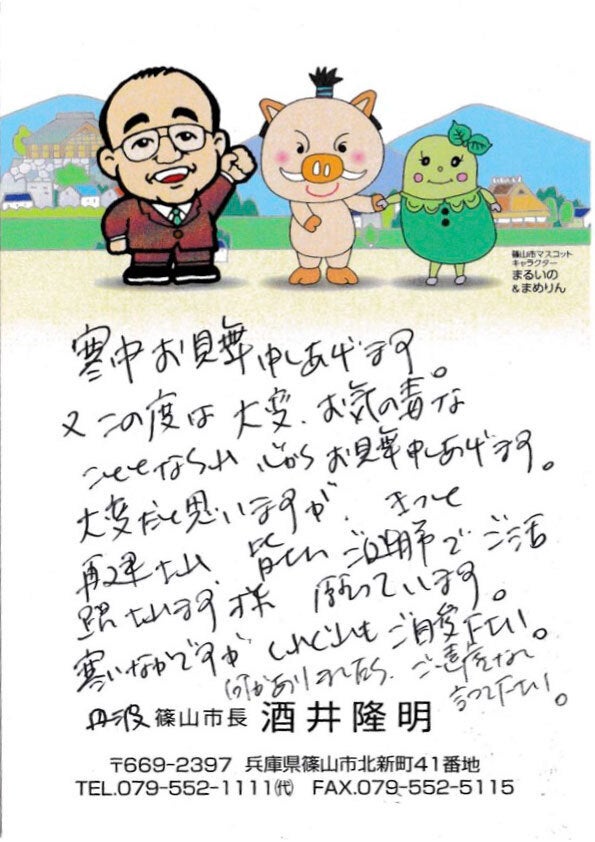 篠山市マスコット
キャラクター
まるいの
&まめりん
寒中お見舞申しあげます。
又この度は大変、お気の毒な
こととなられ 心からお見舞申しあげます。
大変だと思いますが、きっと
再建され、皆さん ご健勝で ご活
躍されます様 願っています。
寒いなかですが くれぐれも ご自愛下さい。
何かありましたら、ご遠慮なく
言って下さい。
丹波 篠山市長 酒井隆明
〒669-2397 兵庫県篠山市北新町41番地
TEL.079-552-1111㈹ FAX.079-552-5115